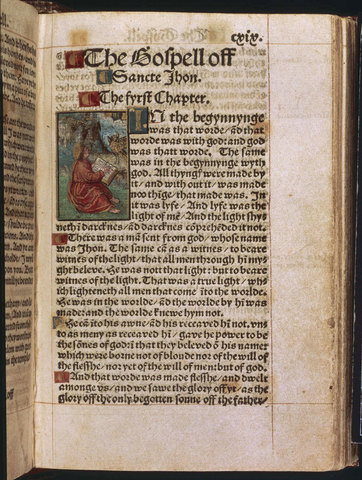 cxix.
The Gospell off
Sancte Jhon.
The fyrst Chapter.
IN the begynnynge
was that worde/ ād that
worde was with god: and god
was thatt worde. The same
was in the begynnynge wyth
god. All thyngꝭ were made by
it/ and with out it/ was made
noo thige/ that made was. In
it was lyfe/ And lyfe was the
light of mē/ And the light shy⸗
neth i darcknes/ ād darcknes cōprehēded it not.
There was a mā sent from god/ whose name
was Jhon. The same cā as a witnes/ to beare
witnes of the light/ that all men through hī my⸗
ght beleve. He was nott that light: but to beare
witnes of the light. That was a true light/ whi⸗
ch lighteneth all men that come īto the worlde.
He was in the worlde/ ād the worlde by hī was
made: and the worlde knewe hym not.
He cā īto his awne/ ād his receaved hī not. vns
to as meny as receaved hī/ gave he power to be
the sōnes of god: ī that they beleved ō his name:
which were borne not of bloude nor of the will of
the flesshe/ nor yet of the will of men: but of god.
And that worde was made flesshe/ and dwelt
amonge vs/ and we sawe the glory off yt/ as the
glory off the only begotten sonne off the father/